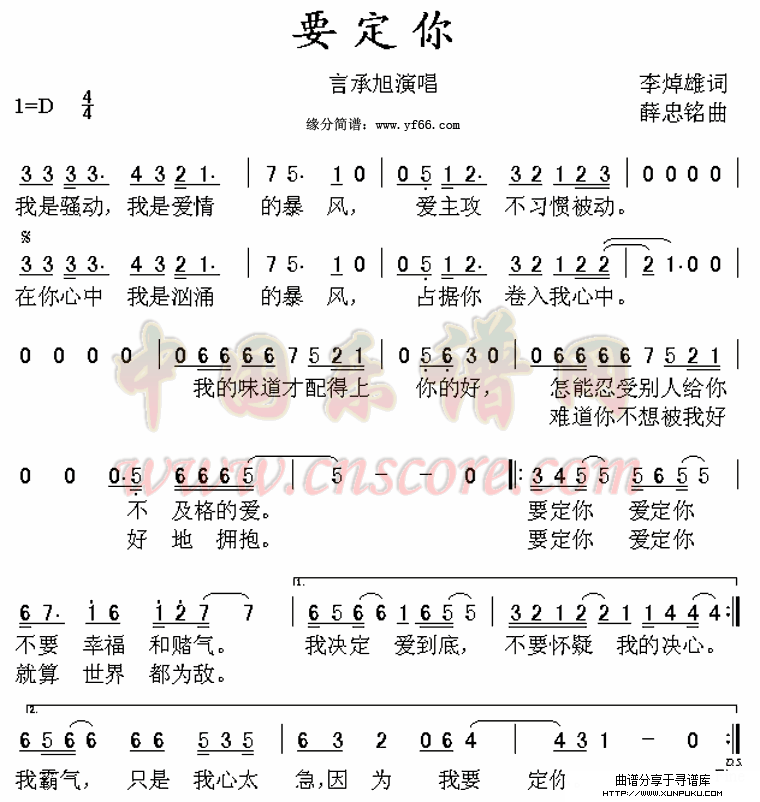 要定你
言承旭演唱 李焯雄词
1=D 4/4 缘分简谱：www.yf66.com 薛忠铭曲
3 3 3 3· 4 3 2 1· | 7 5· 1 0 | 0 5 1 2· 3 2 1 2 3 | 0 0 0 0 |
我是骚动，我是爱情 的暴 风， 爱主攻 不习惯被动。
3 3 3 3· 4 3 2 1· | 7 5· 1 0 | 0 5 1 2· 3 2 1 2 2 | 2 1· 0 0 |
在你心中 我是汹涌 的暴 风， 占据你 卷入我心中。
0 0 0 0 | 0 6 6 6 6 6 7 5 2 1 | 0 5 6 3 0 | 0 6 6 6 6 6 7 5 2 1 |
我的味道才配得上 你的好， 怎能忍受别人给你
难道你不想被我好
中国乐谱网
www.cnscore.com
0 0 0·5 6 6 6 5 | 5 - - 0 |: 3 4 5 5 5 6 5 5 |
不 及格的爱。 要定你 爱定你
好 地 拥抱。 要定你 爱定你
6 7· 1 6 1 2 7 7 | 1. 6 5 6 6 1 6 5 5 | 3 2 1 2 2 1 1 4 4 4 :|
不要 幸福 和赌气。 我决定 爱到底， 不要怀疑 我的决心。
就算 世界 都为敌。
2. 6 5 6 6 6 6 5 3 5 | 6 3 2 0 6 4 | 4 3 1 - 0 :|
D.S.
我霸气， 只是 我心太 急，因 为 我要 定你
曲谱分享于寻谱库
HTTP://WWW.XUNPUKU.COM